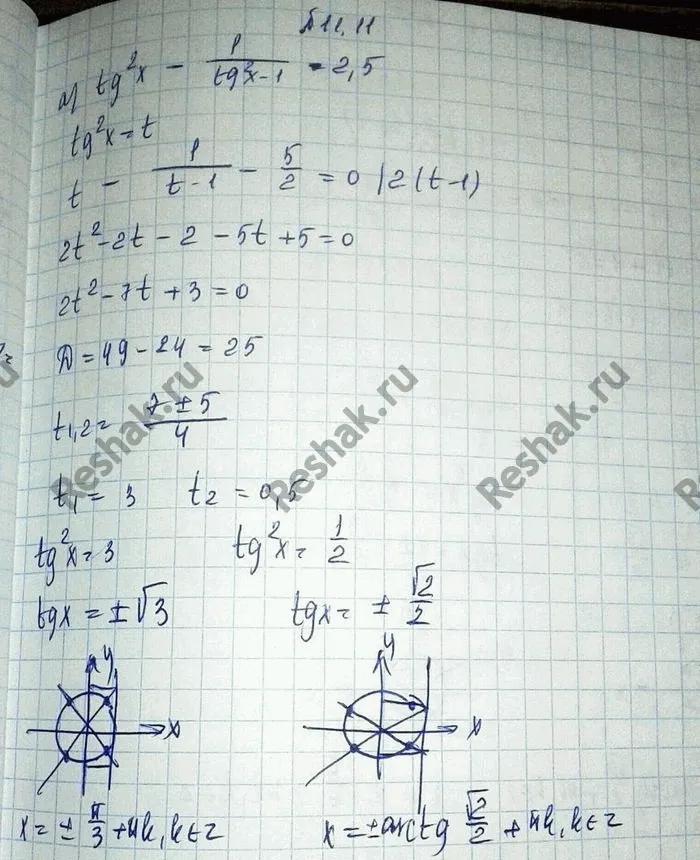 П11.11
а) tg²x - 1/(tg²x-1) = 2,5
tg²x = t
t - 1/(t-1) - 5/2 = 0 |2(t-1)
2t² - 2t - 2 - 5t + 5 = 0
2t² - 7t + 3 = 0
Д = 49 - 24 = 25
t1,2 = (7 ± 5)/4
t₁ = 3 t₂ = 0,5
tg²x = 3 tg²x = 1/2
tgx = ±√3 tgx = ± √2/2
y y
x x
x = ± π/3 + πk, k∈z x = ± arctg √2/2 + πk, k∈z
Reshak.ru Reshak.ru Reshak.ru